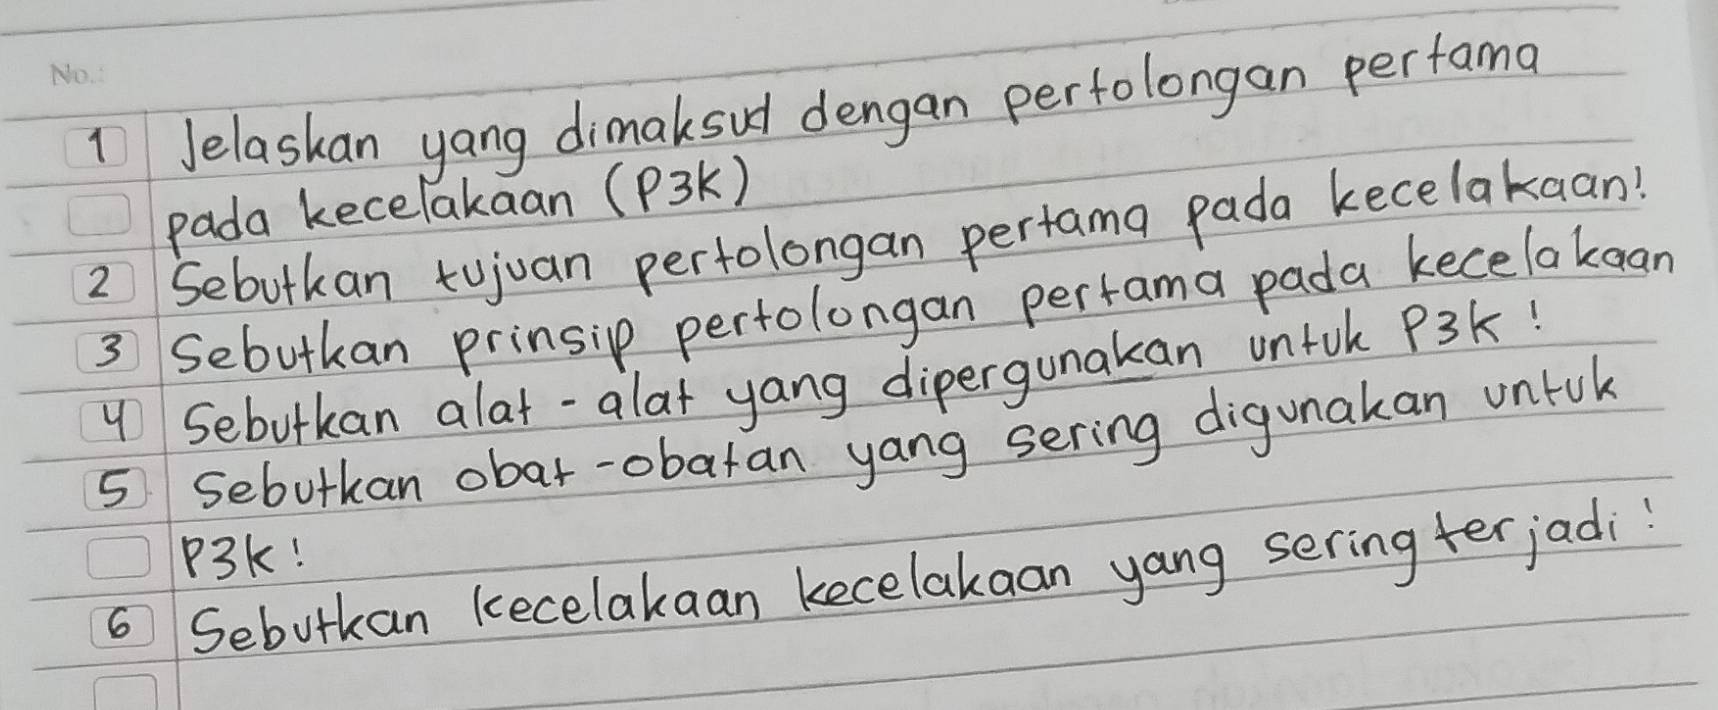 No.:
1 Jelaskan yang dimaksud dengan pertolongan pertama
pada kecelakaan (P3K)
2 Sebutkan tujuan pertolongan pertama pada kecelakaan!
3 Sebutkan prinsip pertolongan pertama pada kecelakaan
4 Sebutkan alat-alat yang dipergunakan untuk P3K!
5 Sebutkan obat-obatan yang sering digunakan untuk
P3K!
6 Sebutkan kecelakaan kecelakaan yang sering terjadi!